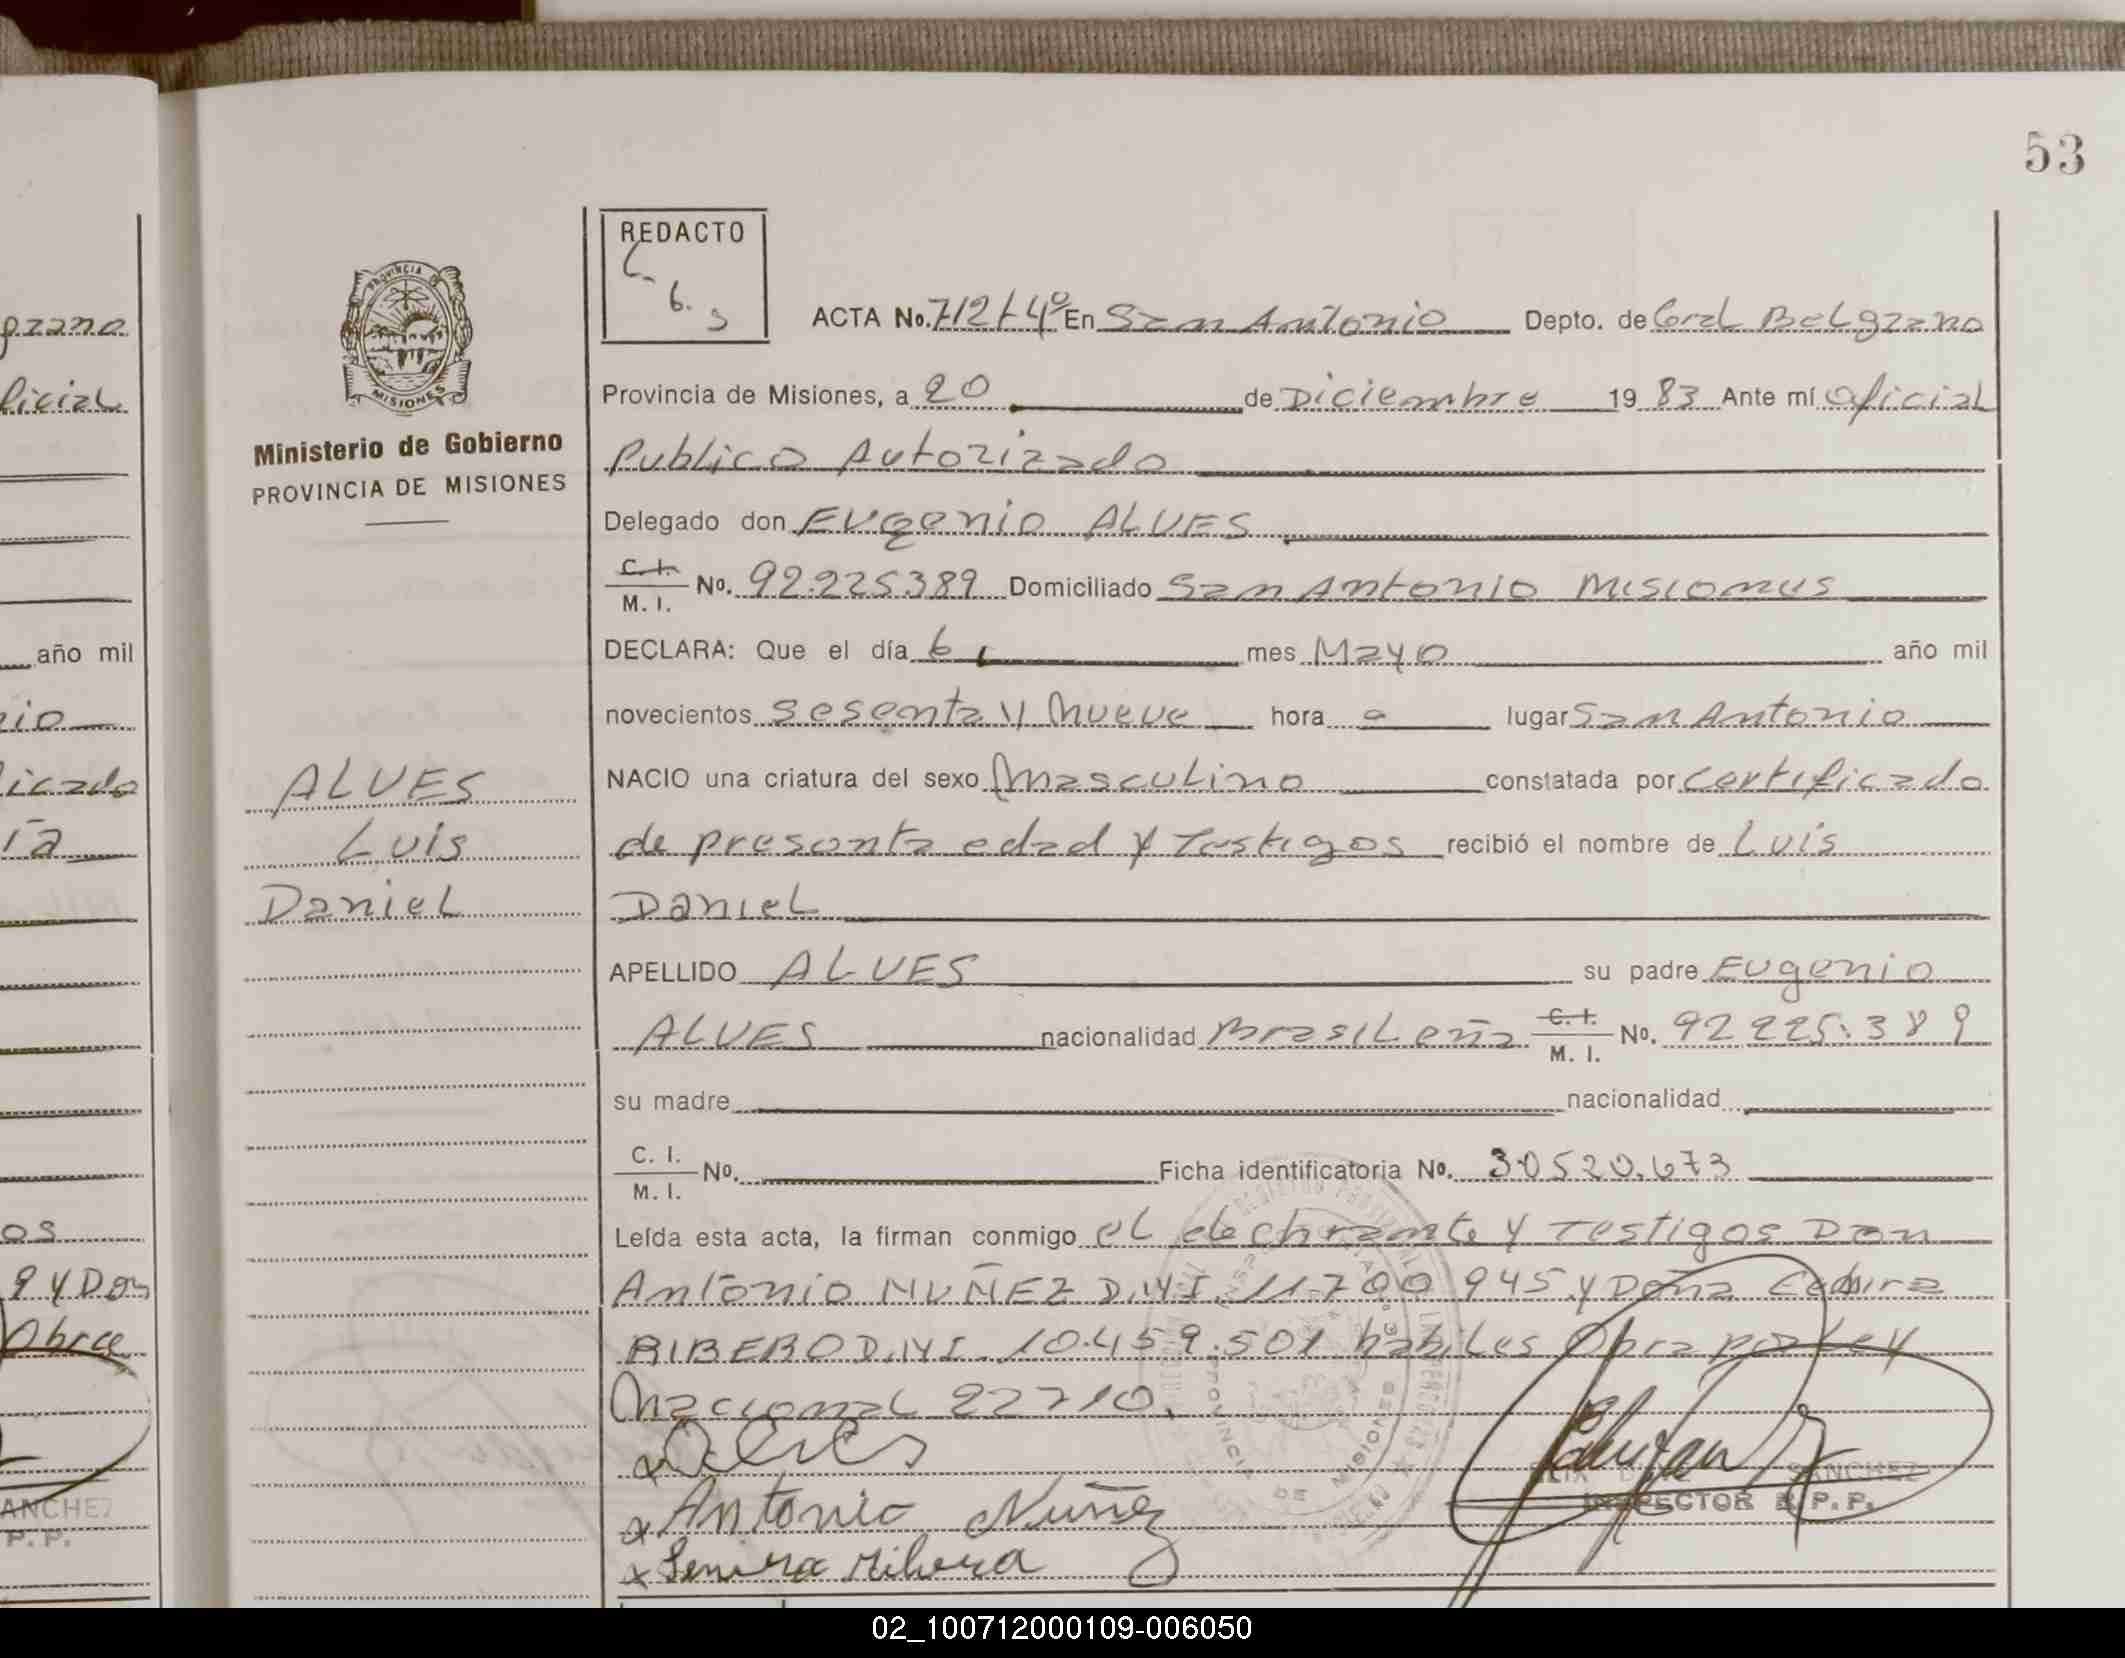 53
REDACTO
6.
PROVINCIA DE
MISIONES
Ministerio de Gobierno
PROVINCIA DE MISIONES
ACTA No. 712 t-4º En San Antonio Depto. de Gral Belgrano
Provincia de Misiones, a 20 de Diciembre 19 83 Ante mí Oficial
Publico Autorizado
Delegado don Eugenio ALVES
C. I. M. I. No. 92.225.389 Domiciliado San Antonio Misiones
DECLARA: Que el día 6 mes Mayo año mil
novecientos sesenta y nueve hora - lugar San Antonio
NACIO una criatura del sexo Masculino constatada por certificado
de presenta edad y Testigos recibió el nombre de Luis
Daniel
APELLIDO ALVES su padre Eugenio
ALVES nacionalidad Brasileña C. I. M. I. No. 92 225.389
su madre nacionalidad
C. I. M. I. No. Ficha identificatoria No. 30520.673
Leída esta acta, la firman conmigo el declarante y Testigos Don
Antonio NUÑEZ D.M.I. 11.700 945 y Doña
RIBERO D.M.I. 10.459.501 habiles Obra por Ley
Nacional 22710.
x Alves
x Antonio Nuñez
x Ribera
SANCHEZ
INSPECTOR R. P. P.
PROVINCIA DE MISIONES
ALVES
Luis
Daniel
grano
ficial
año mil
nio
ficado
ia
os
9 y Don
Obra
ANCHEZ
P. P.
02_100712000109-006050